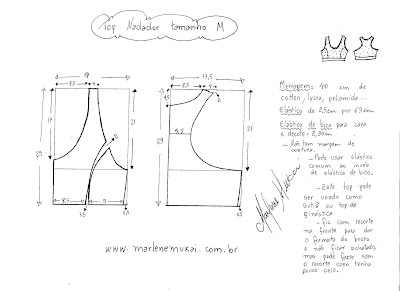 Top Nadador tamanho M
18
8,5
4
17
21
29
2
9,5
8,5
1,5
0,5
17,5
8,5
4
4,5
2
4,5
21
29
0,5
Metragem: 40 cm de
cotton, lycra, poliamida...
Elástico de 2,5cm por 63cm
Elástico de bico para cava
e decote = 2,30m
- Não tem margem de
costura.
- Pode usar elástico
comum ao invés
de elástico de bico.
- Este top pode
ser usado como
sutiã ou top de
ginástica.
- fiz com recorte
na frente para dar
o formato do busto
e não ficar achatado
mas pode fazer sem
o recorte caso tenha
pouco seio.
Marlene Mukai
www.marlenemukai.com.br